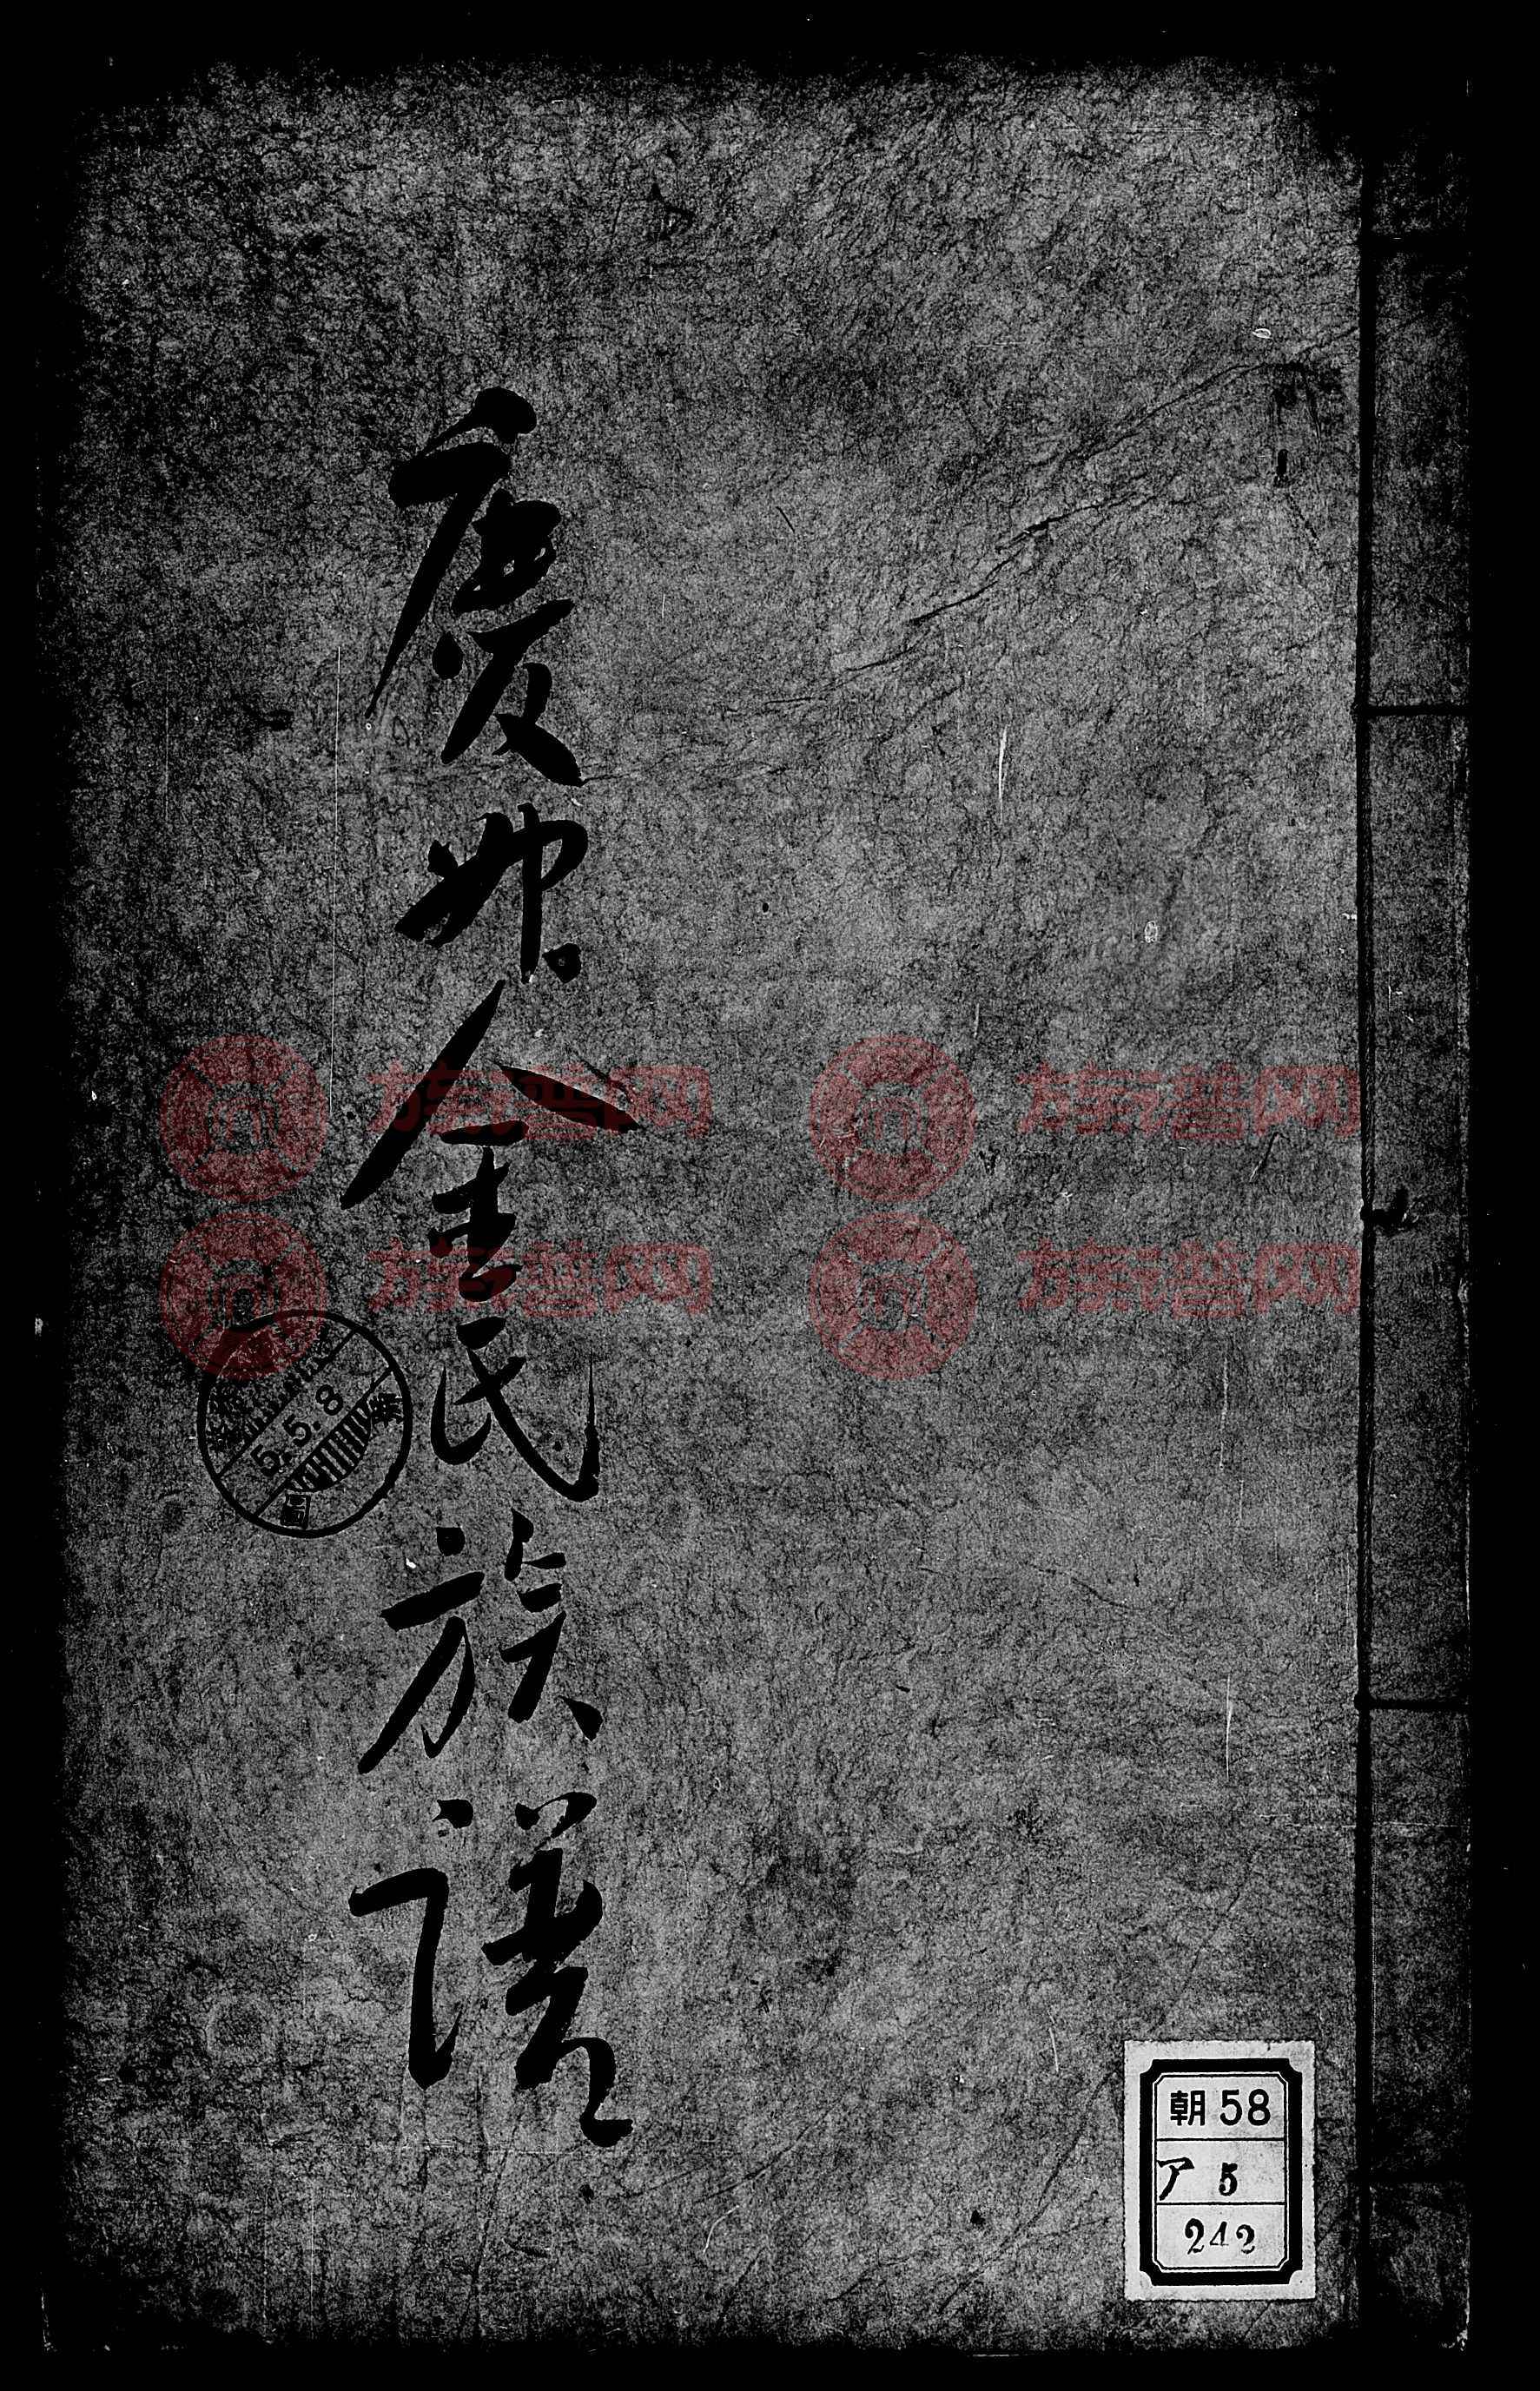 慶州金氏族譜
族谱网 族谱网
族谱网 族谱网
5.5.8
圖
朝58
ア 5
242